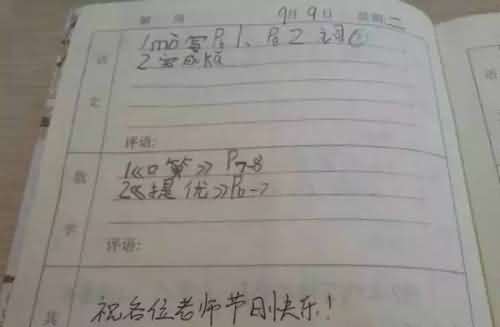 9月9日 星期二
语文
1mò写P61、P62词①
2完成kǎ
评语:
数学
1《口算》P7-8
2《提优》P6-7
评语:
其
祝各位老师节日快乐!